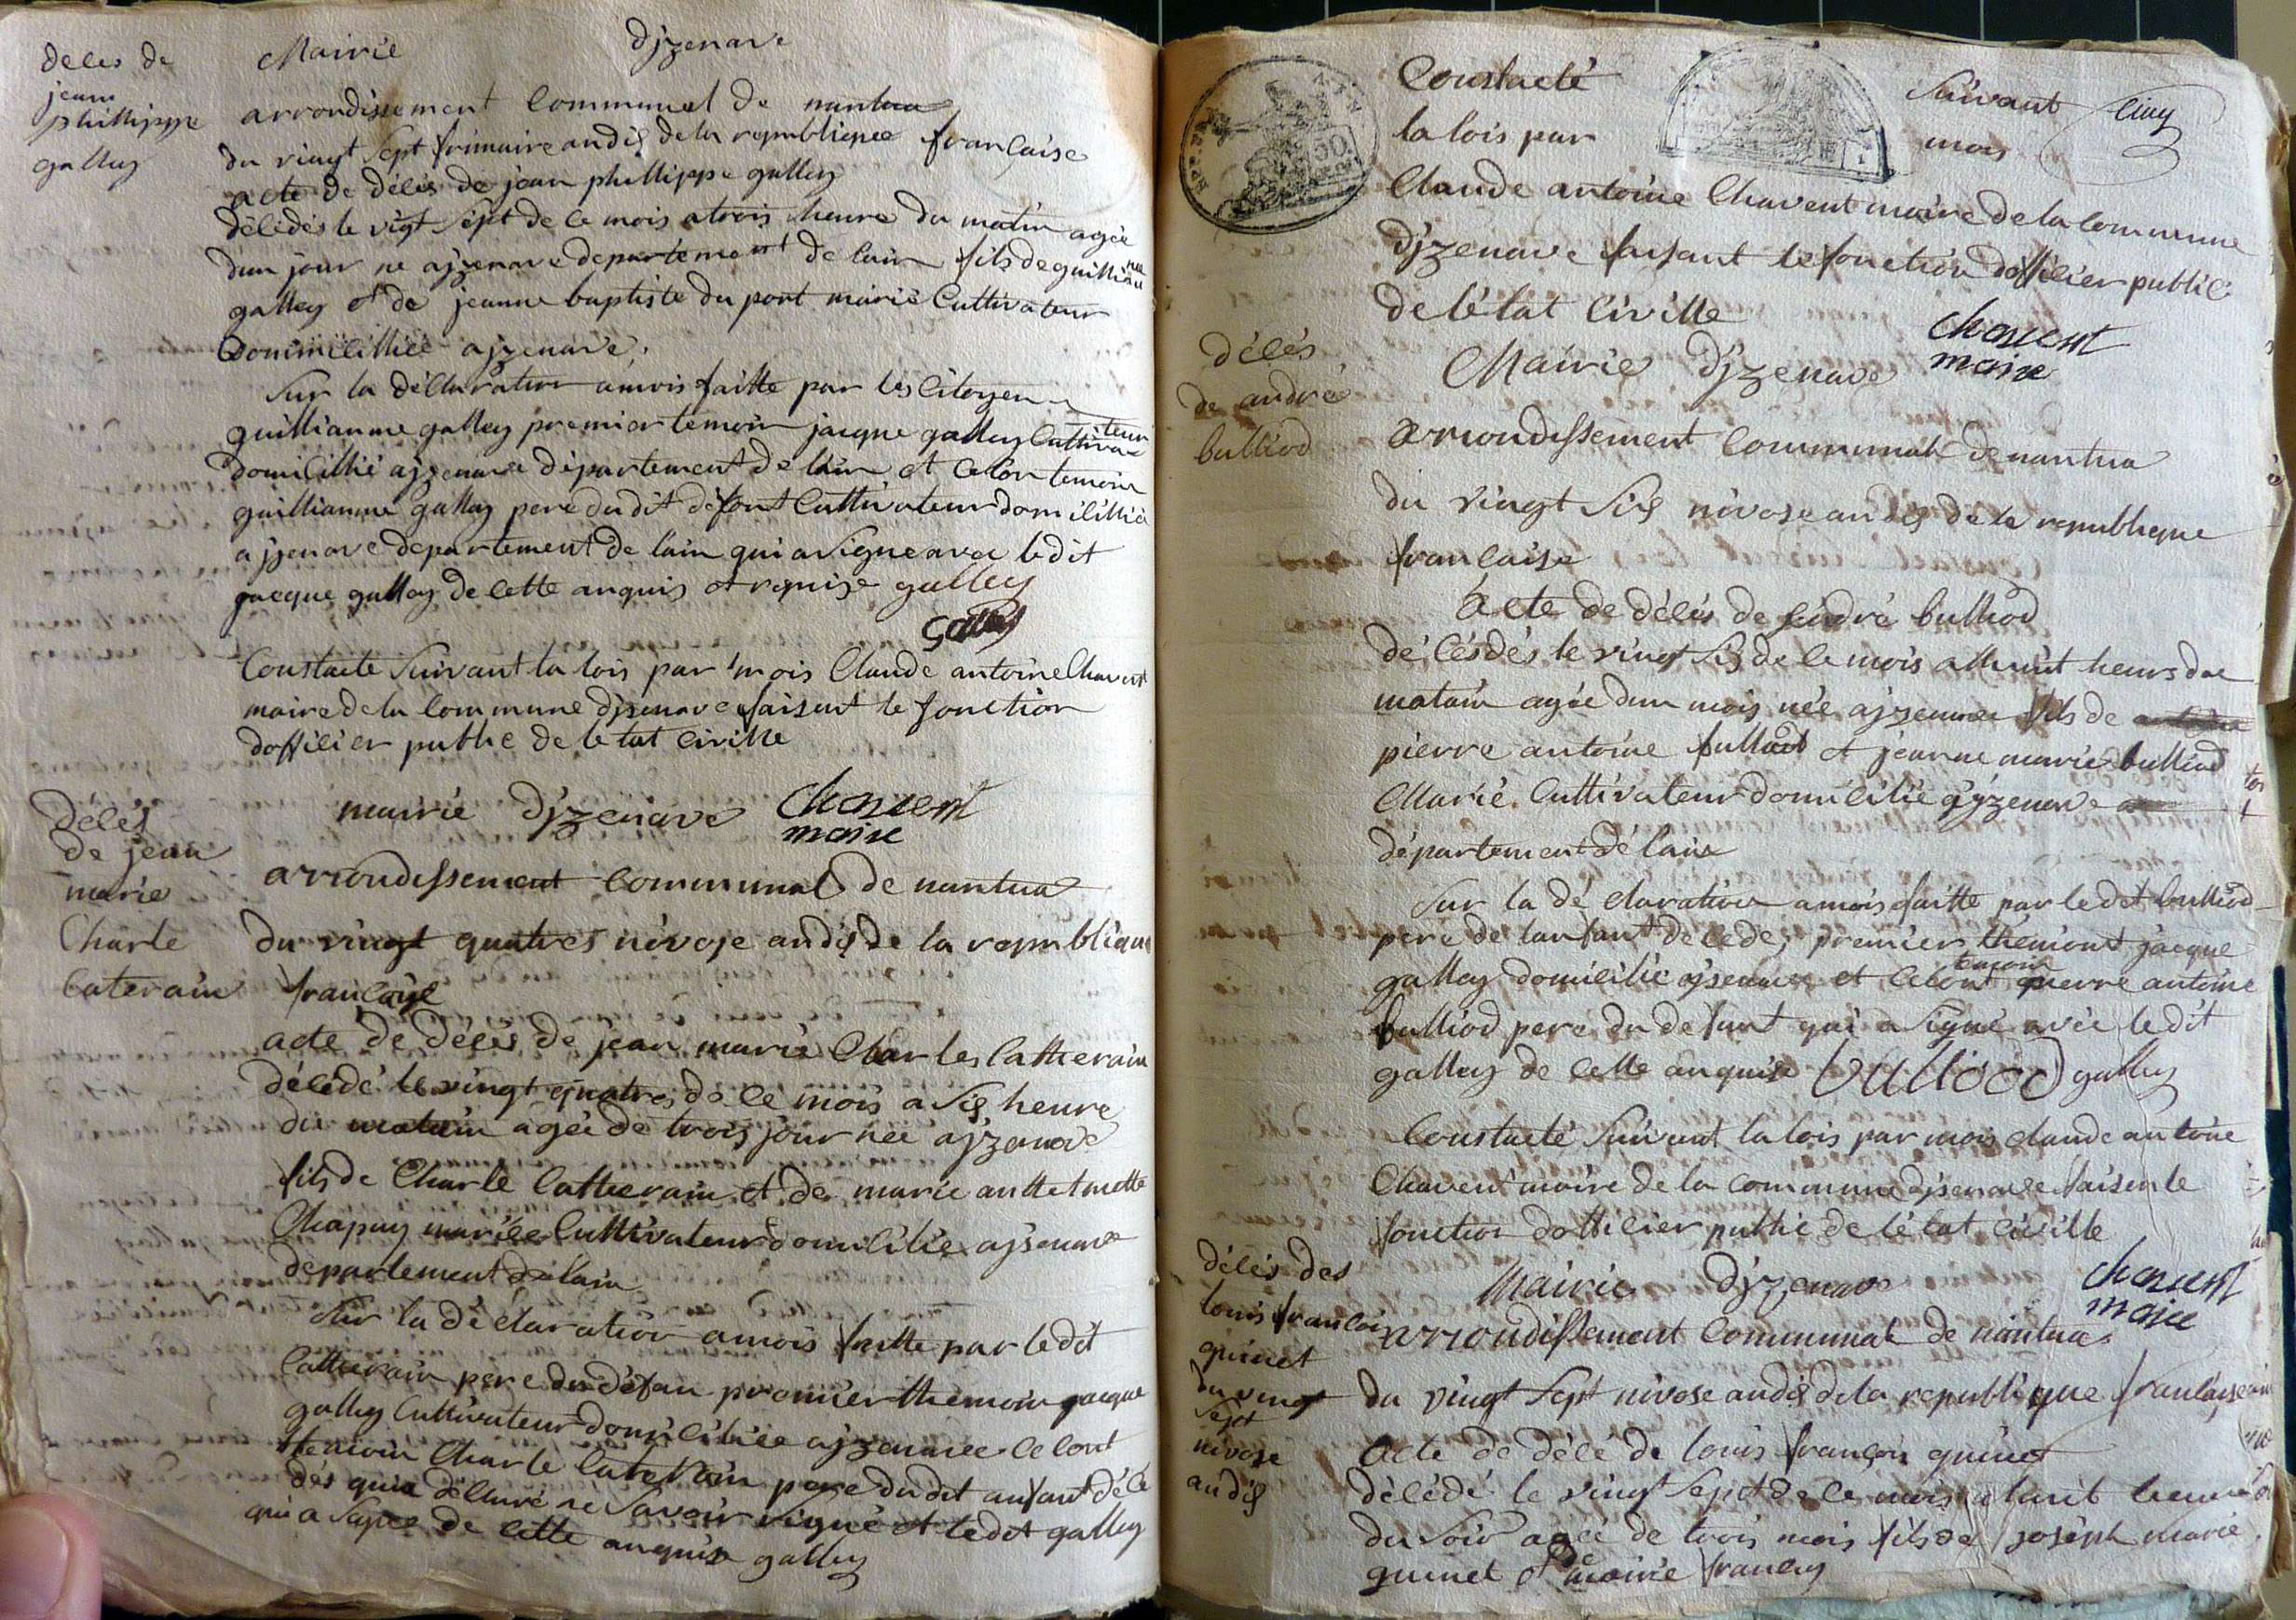 Mairie djzenave
deces de
jean
phillippe
galley
arrondissement communel de nantua
du vingt sept frimaire an dis de la republiquee francaise
acte de décés de jean phillippe galley
décédés le vigt sept de ce mois a trois heure du matin agée
dun jour ne ajzenave departement de lain fils de guilliaume
galley et de jeanne baptiste du pont marié cultivateur
domicilliée ajzenave
Sur la déclaration amois faitte par les citoyen
guillianme galley premier temoin jacque galley cultivateur
domicillié ajzenave département de lain et celon temoin
guillianme galley pere du dit défont cultivateur domicillié
ajzenave departement de lain qui a signe avec le dit
jacque galley de cette anquis et requise galley
galley
Constacte suivant la lois par mois Claude antoine Chavent
maire de la commune djzenave faisent le fonction
dofficier public de letat civille
mairie djzenave Chavent
maire
décés
de jean
marie
Charle
caterain
arrondissement communal de nantua
du vingt quatres nivose an dis de la republique
francaise
acte de décés de jean marie Charles Catherain
décédé le vingt quatres de ce mois a sis heure
du matain agée de trois jour née ajzenave
fils de Charle Catherain et de marie anttetnette
Chapuy mariée Cultivateur domicilié ajzenave
departement de lain
Sur la déclaration amois faitte par le dit
Catherain pere du défan premier themoin jacque
galley Cultivateur domiciliée ajzenave celont
temoin Charle Caterain pere du dit anfant décé
dés quia délluré ne savoir signé et le dit galley
qui a signe de cette anquise galley
Constacté suivant cinq
la lois par mois
Claude antoine Chavent maire de la commune
djzenave faisant le fonction dofficier public
de létat civille Chavent
maire
décés
de andré
bulliod
Mairie djzenave
arriondissement communal de nantua
du vingt sis nivose an dis de la republique
francaise
Acte de décés de andré bulliod
décésdés le vingt sis de ce mois a lhuit heurs due
matain agée dun mois née ajzenave fils de
pierre antoine bulliod et jeanne marie bulliod
Marié Cultivateur domicilié ajzenave
département de lain
Sur la déclaration amois faitte par le dit bulliod
pere de lanfant decede, premier themont jacque
galley domicilie ajzenave et celont temoin pierre antoine
bulliod pere du defunt qui a signé avec le dit
galley de cette anquise bulliod galley
Constacté suivent la lois par mois claude antoine
Chavent maire de la commune djzenave faisen le
fonction dofficier public de létat civille
Chavent
maire
décés des
louis francois
quinet
du vingt
sept
nivose
an dis
Mairie djzenave
arriondissement communal de nantua
du vingt sept nivose an dis de la republique francaise
Acte de décé de louis françois quinet
décédé le vingt sept de ce mois a huit heure
du soir agée de trois mois fils de joseph marie
quinet et de marie francey